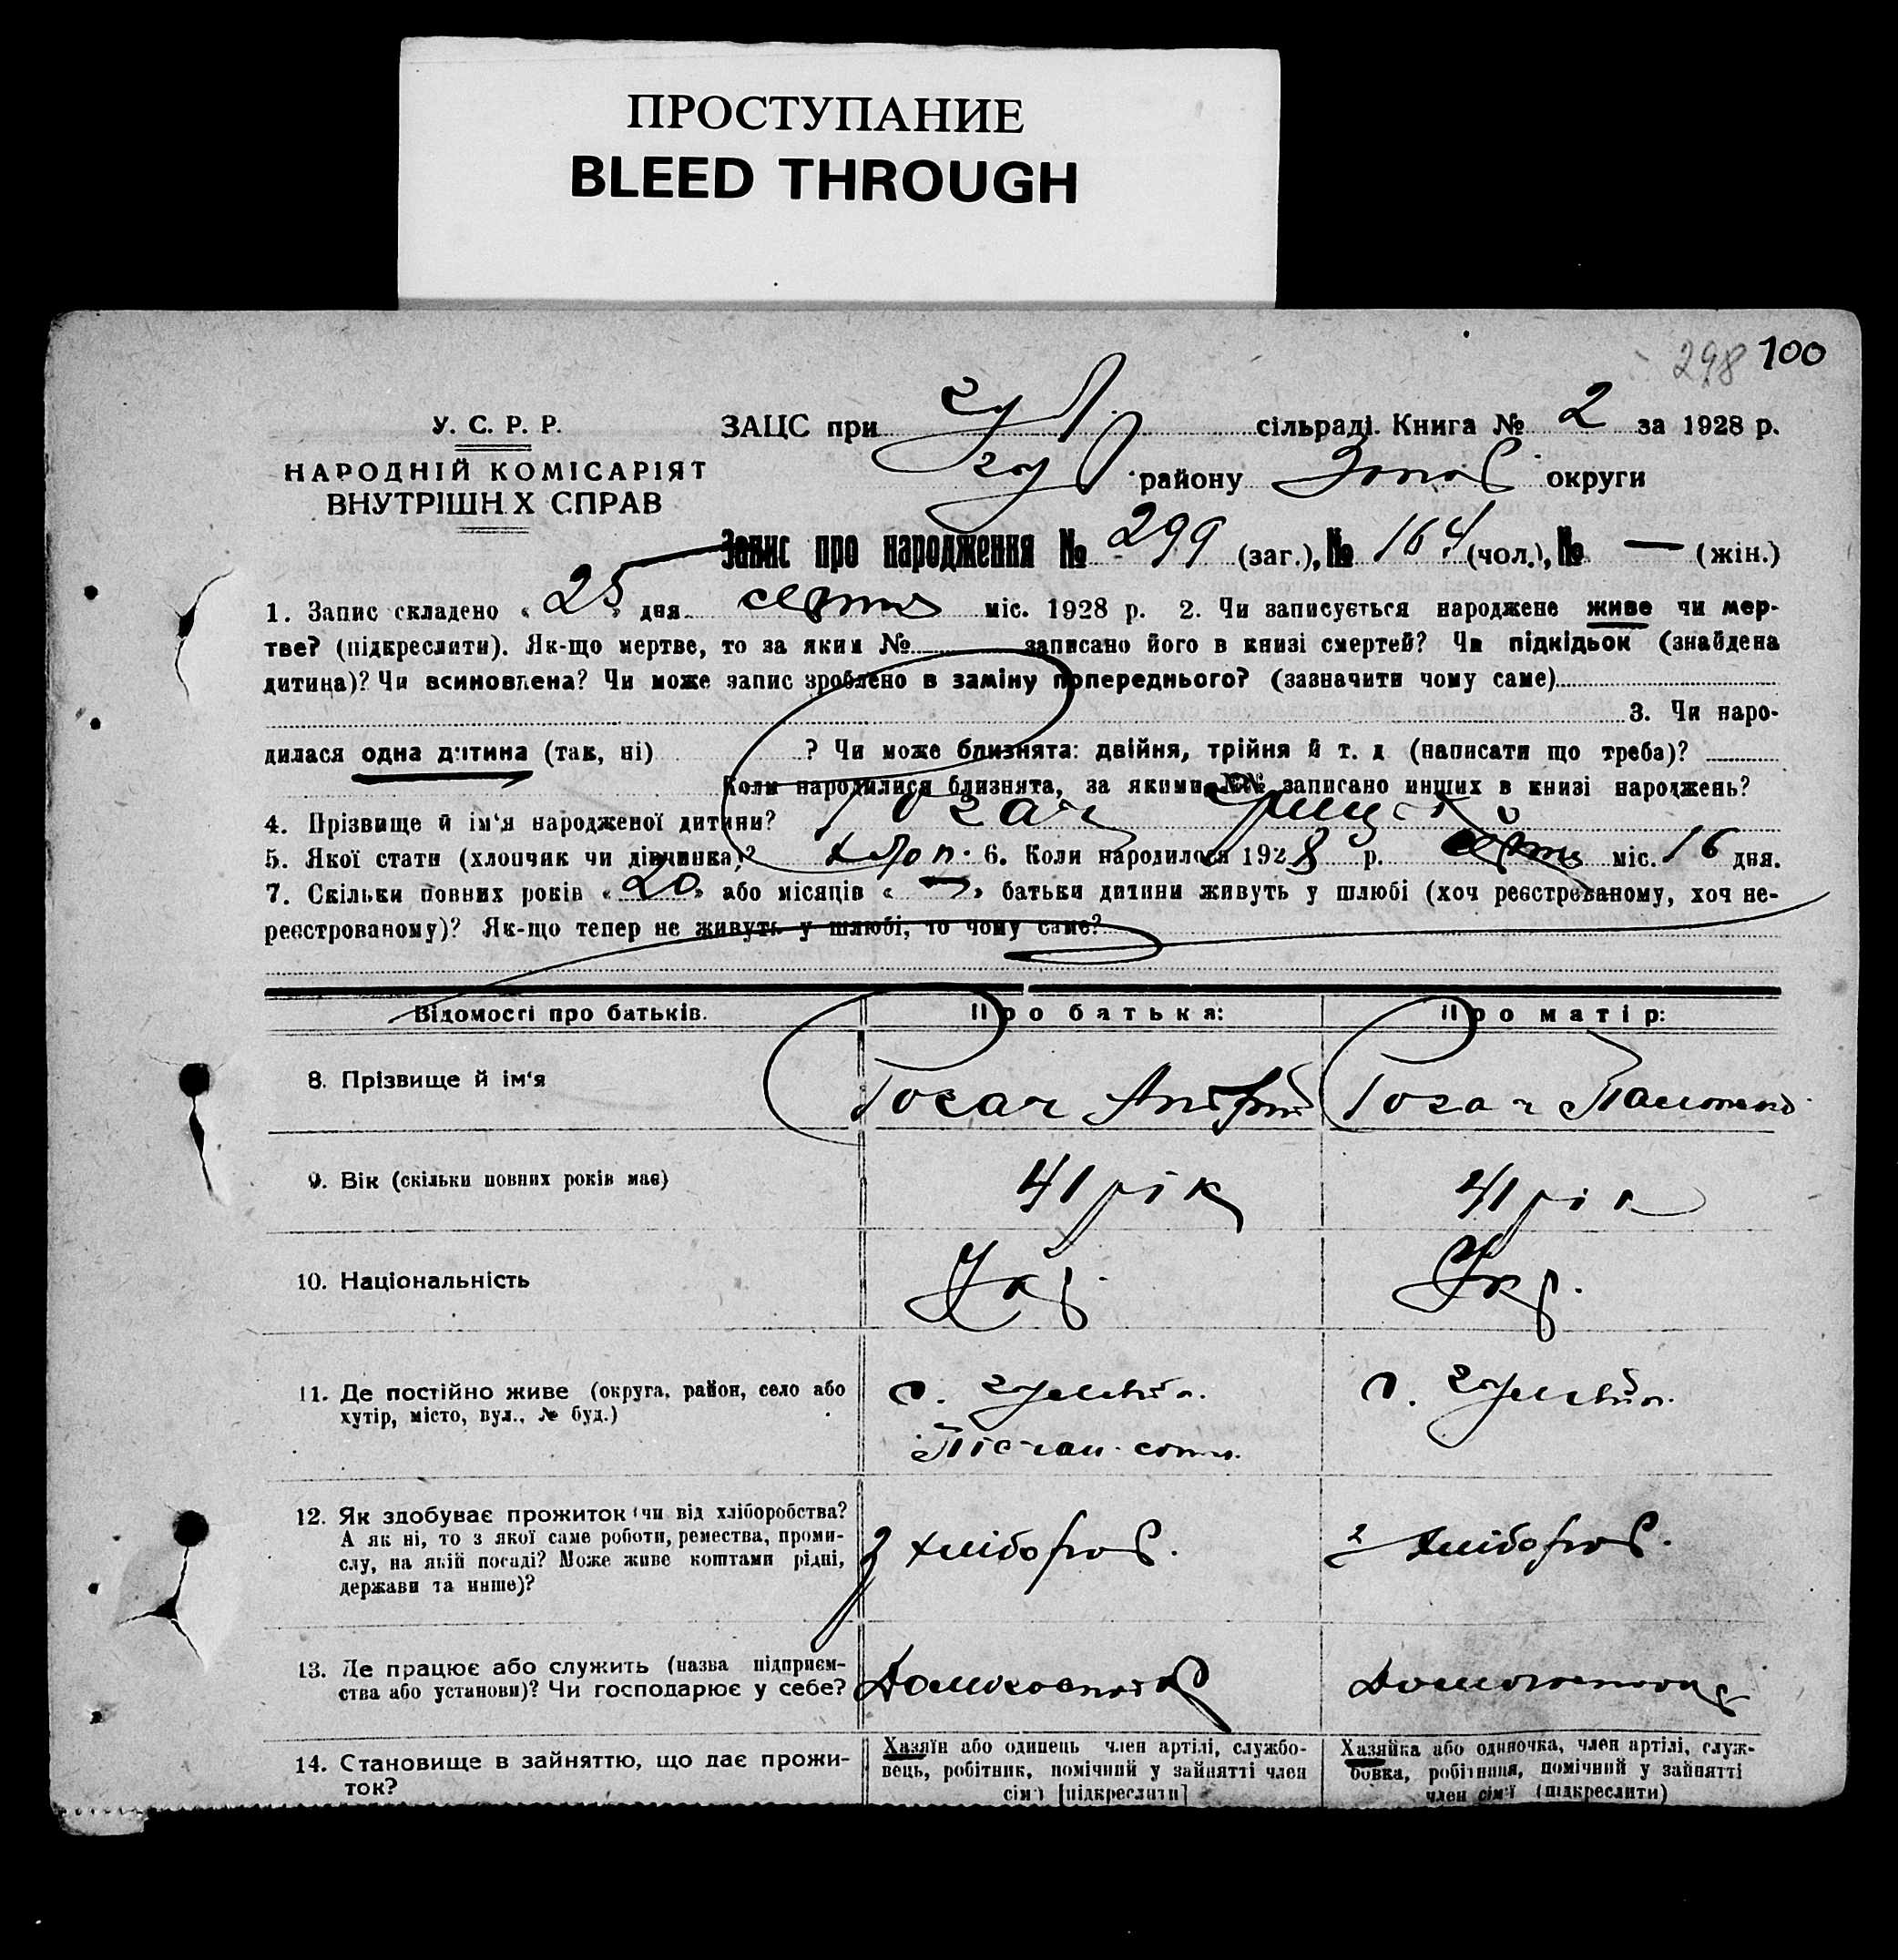 ПРОСТУПАНИЕ
BLEED THROUGH
298 100
У. С. Р. Р.
НАРОДНІЙ КОМІСАРІЯТ
ВНУТРІШН Х СПРАВ
ЗАЦС при сільраді. Книга № 2 за 1928 р.
району округи
Запис про народження № 299 (заг.), № 164 (чол.), № — (жін.)
1. Запис складено « 25 » дня міс. 1928 р. 2. Чи записується народжене живе чи мер-
тве? (підкреслити). Як-що мертве, то за яким № записано його в книзі смертей? Чи підкідьок (знайдена
дитина)? Чи всиновлена? Чи може запис зроблено в заміну попереднього? (зазначити чому саме)
3. Чи наро-
дилася одна дитина (так, ні) ? Чи може близнята: двійня, трійня й т. д (написати що треба)?
Коли народилися близнята, за якими №№ записано инших в книзі народжень?
4. Прізвище й ім'я народженої дитини? Рогач
5. Якої стати (хлопчик чи дівчинка)? хлоп. 6. Коли народилося 1928 р. міс. 16 дня.
7. Скільки повних років « 20 » або місяців « — » батьки дитини живуть у шлюбі (хоч реєстрованому, хоч не-
реєстрованому)? Як-що тепер не живуть у шлюбі, то чому саме?
Відомості про батьків. Про батька: Про матір:
8. Прізвище й ім'я Рогач Андрій Рогач
9. Вік (скільки повних років має) 41 рік 41 рік
10. Національність Укр. Укр.
11. Де постійно живе (округа, район, село або
хутір, місто, вул., № буд.)
с. с.
12. Як здобуває прожиток (чи від хліборобства?
А як ні, то з якої саме роботи, ремества, проми-
слу, на якій посаді? Може живе коштами рідні,
держави та инше)?
з хлібороб. з хлібороб.
13. Де працює або служить (назва підприєм-
ства або установи)? Чи господарює у себе?
14. Становище в зайняттю, що дає прожи-
ток?
Хазяїн або одинець член артілі, службо-
вець, робітник, помічний у зайнятті член
сім'ї [підкреслити]
Хазяйка або одиночка, член артілі, служ-
бовка, робітниця, помічний у зайнятті
член сім'ї (підкреслити)